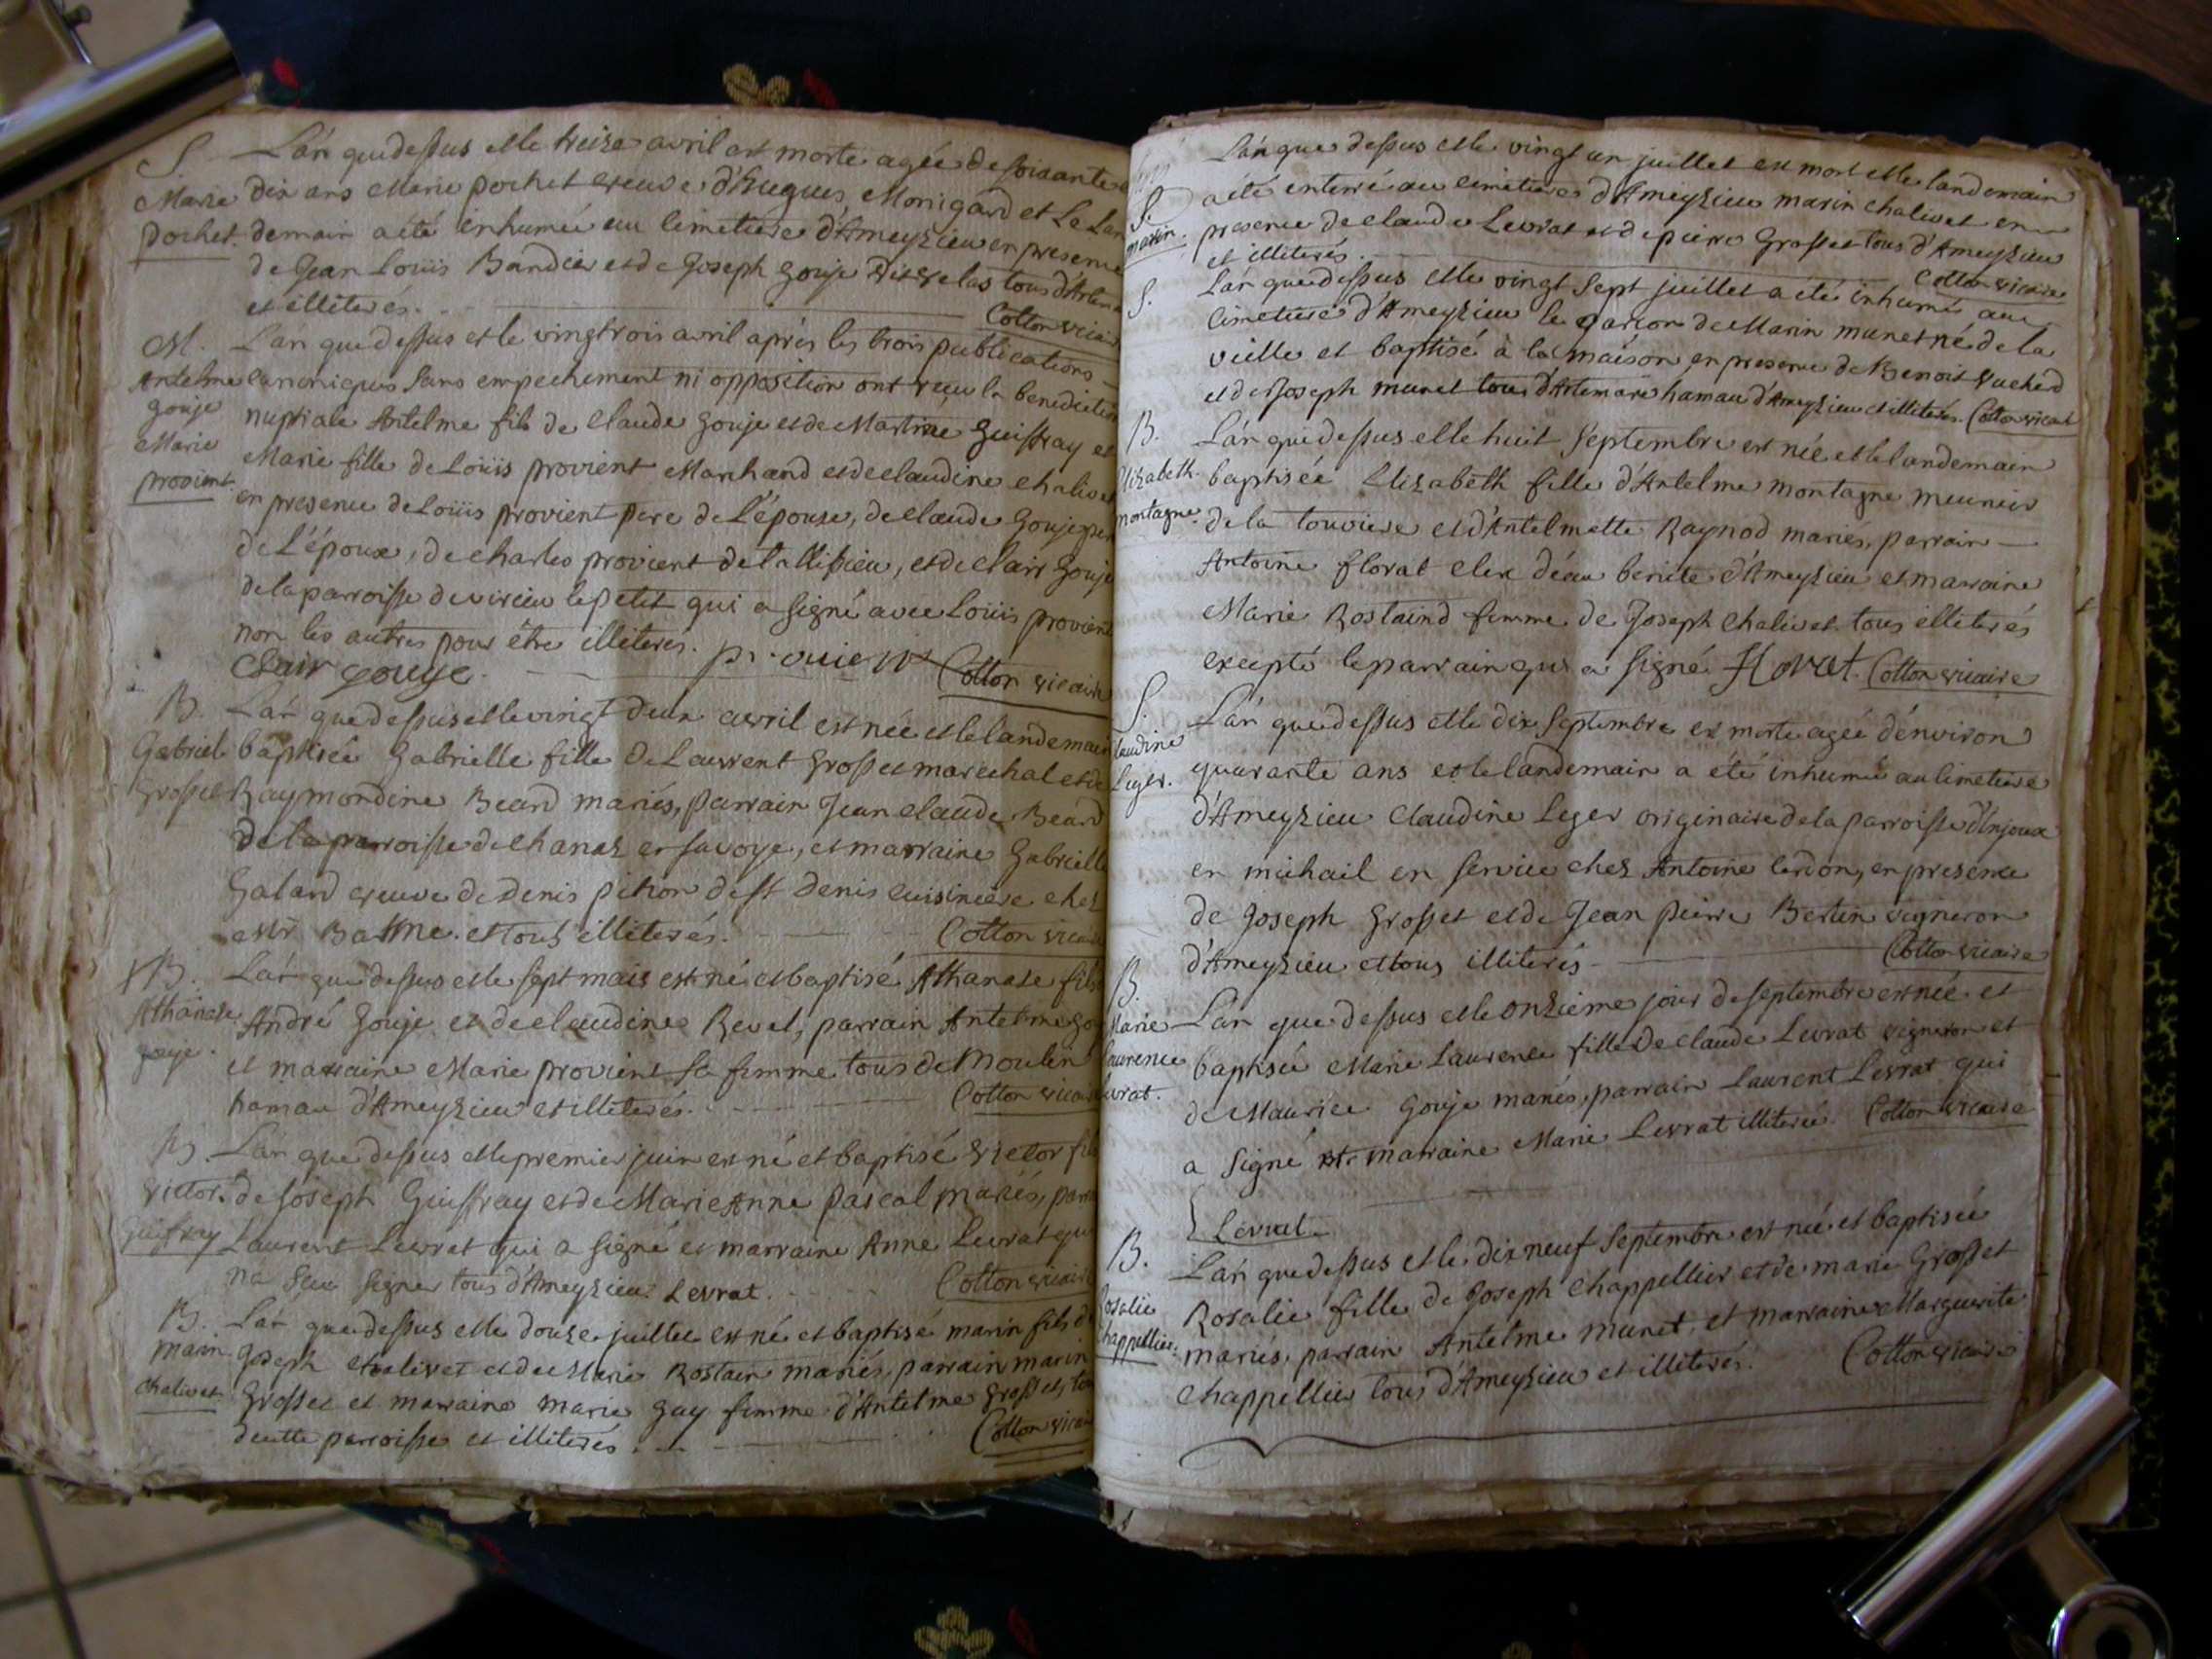 S. L'an que dessus et le treize avril est morte agée de soixante
Marie dix ans Marie pochet veuve d'Hugues Monigard et Le Lan
pochet. demain a été inhumée au cimetiere d'Ameyzieu en presence
de Jean Loüis Bandier et de Joseph gouje dit velas tous d'Artem
et illiterés. Cotton vicair
M. L'an que dessus et le vingt trois avril après les trois publications
Antelme canoniques sans empechement ni opposition ont reçu la benediction
gouje nuptiale Antelme fils de Claude gouje et de Martine guiffray et
Marie Marie fille de Loüis provient Marchand et de claudine chalivet
provient. en presence de Loüis provient pere de L'épouse, de claude Gouje per
de L'époux, de charles provient de tallissieu, et de clair gouje
de la parroisse de virieu le petit qui a signé avec Loüis provient
non les autres pour être illiterés. pr. ovient Cotton vicaire
Clair gouge.
B. L'an que dessus et le vingt deux avril est née et le landemain
Gabriele baptisée Gabrielle fille de Laurent Grosset marechal et de
Grosset Raymondine Beard mariés, parrain Jean claude Beard
de la parroisse de Chanaz en savoye, et marraine Gabrielle
Galard veuve de Denis pition de st Denis cuisiniere chez
Mr Balme. et tous illiterés. Cotton vicair
B. L'an que dessus et le sept mais est né et baptisé Athanase fils
Athanase André gouje et de claudine Revel, parrain Antelme go
gouje. et marraine Marie provient sa femme tous de Moulin
hamau d'Ameyzieu et illiterés. Cotton vicair
B. L'an que dessus et le premier juin est né et baptisé victor fils
victor de joseph Guiffray et de Marie Anne pascal mariés, parr
Guiffray Laurent Levrat qui a signé et marraine Anne Levrat qui
na seu signer tous d'Ameyzieu. Levrat. Cotton vicaire
B. L'an que dessus et le douze juillet est né et baptisé marin fils d
marin joseph chalivet et de Marie Rostain mariés, parrain marin
chalivet Grosset et marraine marie guy femme d'Antelme Grosset, to
de cette parroisse et illiterés. Cotton vicair
L'an que dessus et le vingt un juillet est mort et le landemain
S. a été enterré au cimetiere d'Ameyzieu marin chalivet en
marin. presence de claude Levrat et de pierre Grosset tous d'Ameyzieu
et illiterés. Cotton vicaire
S. L'an que dessus et le vingt sept juillet a été inhumé au
cimetiere d'Ameyzieu le garcon de Marin munet né de la
vielle et baptisé à la maison en presence de Benoit vucherd
et de joseph munet tous d'Artemare hamau d'Ameyzieu et illiterés. Cotton vicair
B. L'an que dessus et le huit septembre est née et le landemain
Elizabeth baptisée Elizabeth fille d'Antelme montagne meunier
montagne. de la touviere et d'Antelmette Raynod mariés, parrain
Antoine florat clerc d'eau benite d'Ameyzieu et marraine
Marie Rostaind femme de joseph chalivet tous illiterés
excepté le parrain qui a signé florat. Cotton vicaire
S. L'an que dessus et le dix septembre est morte agée d'environ
claudine quarante ans et le landemain a été inhumée au cimetiere
Leger. d'Ameyzieu claudine Leger originaire de la parroisse d'Injoux
en michail en service chez Antoine cardon, en presence
de joseph Grosset et de Jean pierre Bertin vigneron
d'Ameyzieu et tous illiterés Cotton vicaire
B. L'an que dessus et le onzieme jour de septembre est née et
Marie baptisée Marie Laurence fille de claude Levrat vigneron et
Laurence de Maurice gouje mariés, parrain Laurent Levrat qui
Levrat. a signé et marraine Marie Levrat illiterée. Cotton vicaire
Levrat
B. L'an que dessus et le dix neuf septembre est née et baptisée
Rosalie Rosalie fille de joseph chappellier et de marie Grosset
chappellier. mariés, parrain Antelme munet, et marraine Marguerite
chappellier tous d'Ameyzieu et illiterés. Cotton vicaire